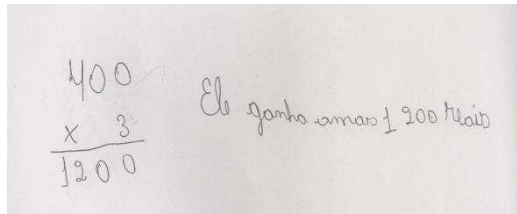 400
x 3
1200
Ele ganha amao 1 200 reais